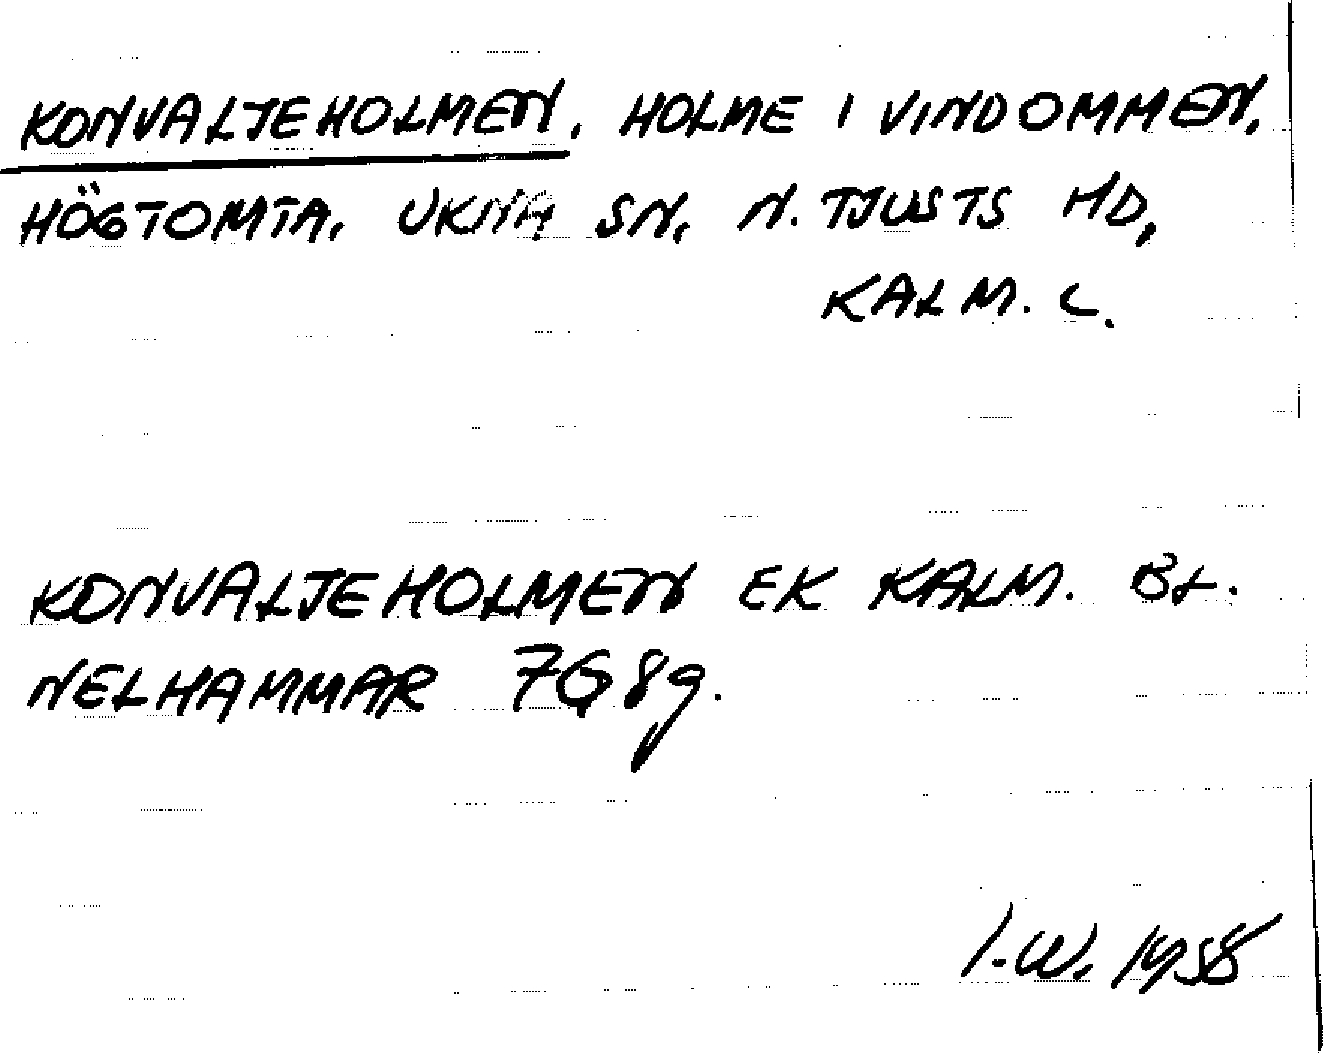 KONVALJEHOLMEN. HOLME I VINDOMMEN,
HÖGTOMTA. UKNA SN, N. TJUSTS HD,
KALM. L.
KONVALJEHOLMEN EK KALM. BL.
NELHAMMAR 7G 8g.
I.W. 1958